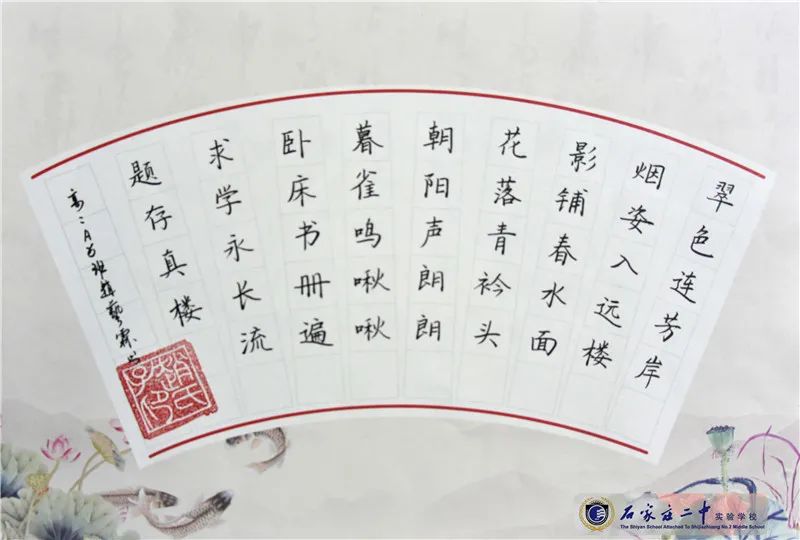 翠色连芳岸
烟姿入远楼
影铺春水面
花落青衿头
朝阳声朗朗
暮雀鸣啾啾
卧床书册遍
求学永长流
题存真楼
石家庄二中 实验学校
The Shiyan School Attached To Shijiazhuang No.2 Middle School